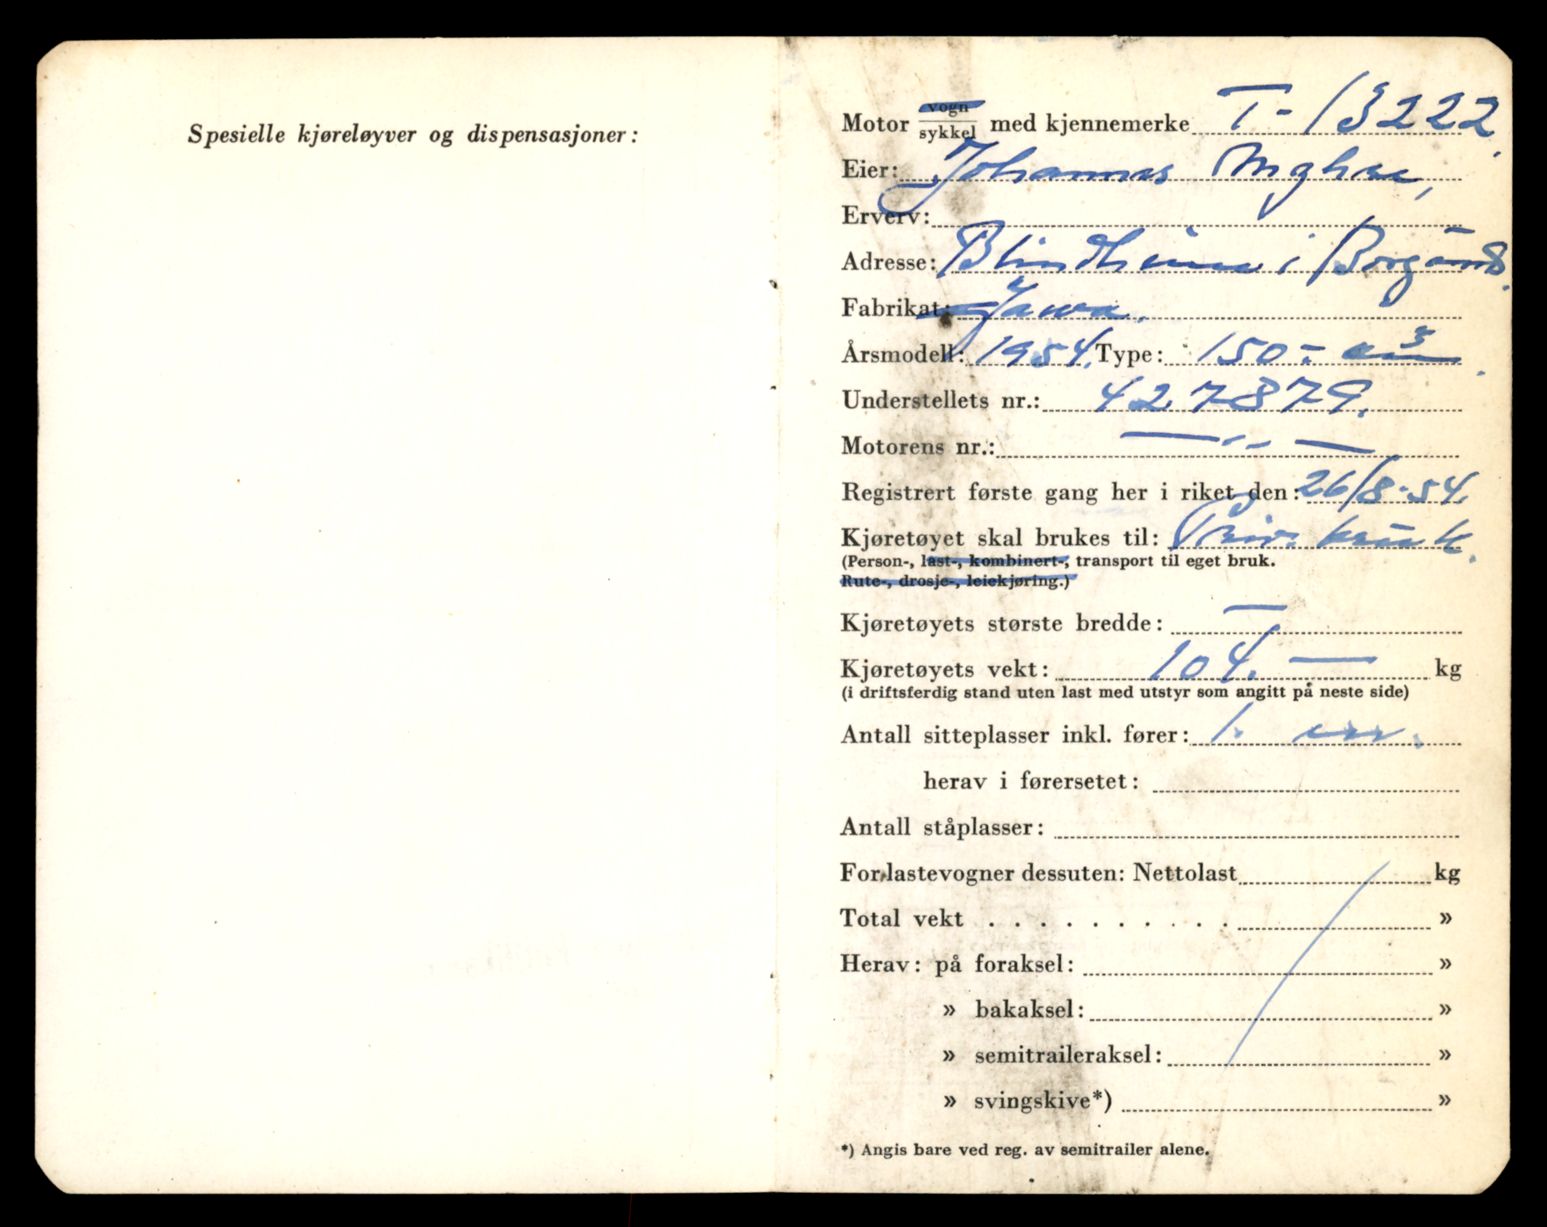 Spesielle kjøreløyver og dispensasjoner:
Motor vogn/sykkel med kjennemerke T-13222.
Eier: Johannes
Erverv:
Adresse: Blindheim i Borgund.
Fabrikat: Jawa.
Årsmodell: 1954. Type: 150-cm³.
Understellets nr.: 427879.
Motorens nr.: — „ —
Registrert første gang her i riket den: 26/8-54.
Kjøretøyet skal brukes til: Priv. bruk.
(Person-, last-, kombinert-, transport til eget bruk.
Rute-, drosje-, leiekjøring.)
Kjøretøyets største bredde: —
Kjøretøyets vekt: 104.— kg
(i driftsferdig stand uten last med utstyr som angitt på neste side)
Antall sitteplasser inkl. fører: 1. en.
herav i førersetet:
Antall ståplasser:
For lastevogner dessuten: Nettolast kg
Total vekt . . . . . . . . . . »
Herav: på foraksel: »
» bakaksel: »
» semitraileraksel: »
» svingskive*) »
*) Angis bare ved reg. av semitrailer alene.